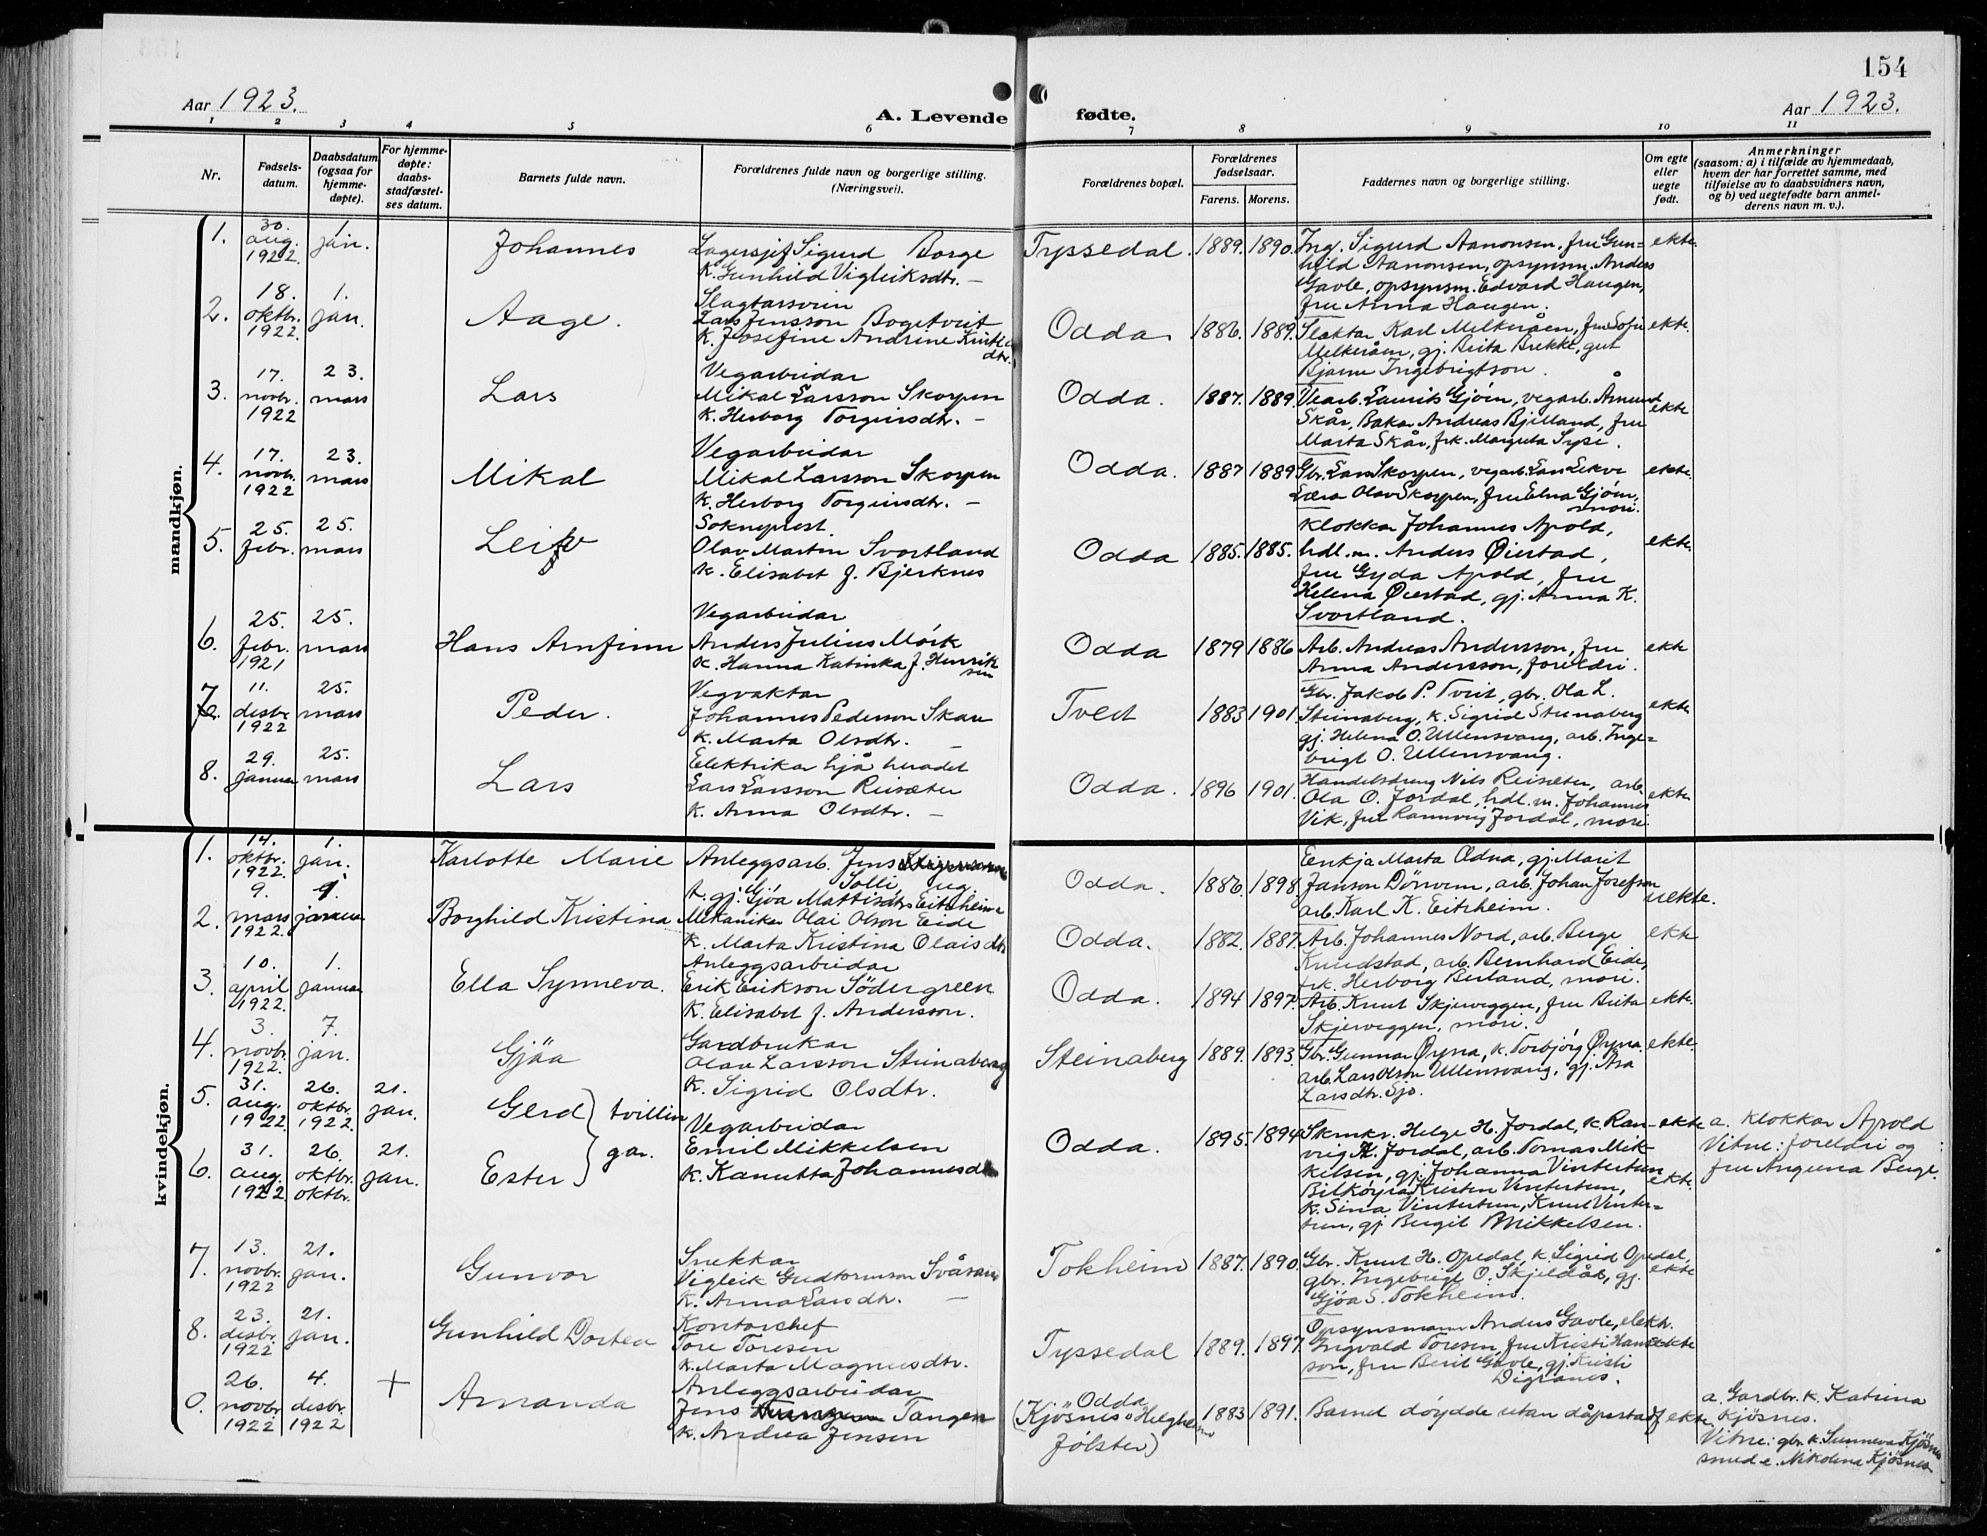 154
Aar 1923.
A. Levende fødte.
Aar 1923.
1 2 3 4 5 6 7 8 9 10 11
Nr.
Fødsels-
datum.
Daabsdatum
(ogsaa for
hjemme-
døpte).
For hjemme-
døpte:
daabs-
stadfæstel-
ses datum.
Barnets fulde navn.
Forældrenes fulde navn og borgerlige stilling.
(Næringsvei).
Forældrenes bopæl.
Forældrenes
fødselsaar.
Farens. Morens.
Faddernes navn og borgerlige stilling.
Om egte
eller
uegte
født.
Anmerkninger
(saasom: a) i tilfælde av hjemmedaab,
hvem der har forrettet samme, med
tilføielse av to daabsvidners navn,
og b) ved uegtefødte barn anmel-
derens navn m. v.).
mandkjøn.
1. 30. aug. 1922. 1. jan. Johannes
Lagersjef Sigurd Borge
k. Gunhild Vigleiksdtr. —
Tyssedal. 1889. 1890.
Ing. Sigurd Aanonsen, fru Gun-
hild Aanonsen, opsynsm. Anders
Gavle, opsynsm. Edvard Haugen,
fru Anna Haugen.
ekte.
2. 18. oktbr. 1922. 1. jan. Aage.
Slagtarsvein
Lars Jensson Bogetveit
k. Josefine Andrine
dtr.
Odda 1886. 1889.
Slaktar Karl Melkeråen, fru Sofie
Melkeråen, gj. Brita Brekke, gut
Bjarne Ingebrigtson.
ekte.
3. 17. novbr. 1922 23. mars Lars
Vegarbeidar
Mikal Larsson Skorpen
k. Herborg Torgeirsdtr. —
Odda. 1887. 1889.
Vearb. Laurits Gjøen, vegarb. Åmund
Skår, Bakar Andreas Bjelland, fru
Marta Skår, frk. Margreta Syse.
ekte
4. 17. novbr. 1922 23. mars Mikal
Vegarbeidar
Mikal Larsson Skorpen
k. Herborg Torgeirsdtr. —
Odda. 1887 1889
Gbr. Lars Skorpen, vegarb. Lars Lekve
Olav Skorpen, fru Elna Gjøen,
mori.
ekte.
5. 25. febr. 25. mars Leif
Sokneprest
Olav Martin Svortland
k. Elisabet f. Bjerknes
Odda 1885. 1885.
Klokkar Johannes Apold,
hdl.m. Anders Øiestad,
fru Gyda Apold, fru
Helena Øiestad, gj. Anna K.
Svortland.
ekte.
6. 25. febr. 1921 25. mars Hans Arnfinn
Vegarbeidar
Anders Julius Mörk
k. Hanna Katinka f. Henrik
sen
Odda 1879 1886
Arb. Andreas Andersson, fru
Anna Andersson, foreldri.
ekte
7. 11. desbr. 1922 25. mars Peder.
Vegvaktar
Johannes Pederson Skare
k. Marta Olsdtr. —
Tveit 1883 1901
Gbr. Jakob P. Tveit, gbr. Ola L.
Steinaberg, k. Sigrid Steinaberg
gj. Helena O. Ullensvang, arb. Inge-
brigt O. Ullensvang.
ekte
8. 29. januar 25. mars Lars
Elektrikar hjå heradet
Lars Larsson Reisæter
k. Anna Olsdtr. —
Odda. 1896 1901.
Handelsdreng Nils Reisæter, arb.
Ola O. Jordal, hdl.m. Johannes
Vik, fru Rannveig Jordal, mori.
ekte
kvindekjøn.
1. 14. oktbr. 1922. 1. jan. Karlotte Marie
Anleggsarb. Jens
Solli, ug.
k. gj. Gjøa Mattisdtr Eitrheim
Odda. 1886. 1898
Enkja Marta Odna, gj. Marit
Janson Dörvem, arb. Johan Josefson
arb. Karl K. Eitrheim.
uekte.
2. 9. mars 1922. 1. januar Borghild Kristina
Mekaniker Olai Olson Eide
k. Marta Kristina Olaisdtr
Odda. 1882. 1887.
Arb. Johannes Nord, arb. Berge
Knudstad, arb. Bernhard Eide,
frk. Herborg Berland, mori.
ekte
3. 10. april 1922. 1. januar Ella Synneva.
Anleggsarbeidar
Erik Erikson Södergreen
k. Elisabet f. Andersson.
Odda. 1894 1897.
Arb. Knut Skjerveggen, fru Brita
Skjerveggen, mori.
ekte.
4. 3. novbr. 1922. 7. jan. Gjöa
Gardbrukar
Olav Larsson Steinaberg
k. Sigrid Olsdtr.
Steinaberg 1889. 1893.
Gbr. Gunnar Öyna, k. Torbjörg Öyna.
arb. Lars Olson Ullensvang, gj. Åsa
Larsdtr. Sjo.
ekte.
5. 31. aug. 1922 26. oktbr. 1922. 21. jan. Gerd } tvillin
6. 31. aug. 1922 26. oktbr. oktbr. 21. jan. Ester } gar.
Vegarbeidar
Emil Mikkelsen
k. Kanutta Johannesdtr
Odda. 1895. 1894
Helge H. Jordal, k. Ran-
veig H. Jordal, arb. Tomas Mik-
kelsen, gj. Johanna Vintertun
Kristen Vintertun,
k. Sina Vintertun, Knut Vinter-
tun, gj Bergit Mikkelsen.
ekte
ekte.
a. Klokkar Apold
Vitne: foreldri og
fru Angena Berge.
7. 13. novbr. 1922 21. jan. Gunvor
Snekkar
Vigleik Gudtormson Svåsand
k. Anna Larsdtr. —
Tokheim 1887. 1890.
Gbr. Knut H. Opedal, k. Sigrid Opedal,
gbr. Ingebrigt O. Skjeldås, gj.
Gjøa S. Tokheim.
ekte
8. 23. desbr. 1922 21. jan. Gunhild Dortea
Kontorchef
Tore Toresen
k. Marta Magnusdtr.
Tyssedal 1889. 1897
Opsynsmann Anders Gavle, elektr.
Ingvald Toresen, fru Kristi Han-
son, fru Berit Gavle, gj. Kristi
Digranes.
ekte
0. 26. novbr. 1922 4. desbr. 1922 + Amanda
Anleggsarbeidar
Jens Tangen
k. Andrea Jensen
Odda
(Kjösnes Helgheim
Jølster)
1883 1891.
Barnet döydde utan dåpstadf ekte
a. Gardbr. k. Katrina
Kjøsnes.
Vitne: gbr. k. Sunneva Kjøsnes
smed e. Nikolina Kjøsnes